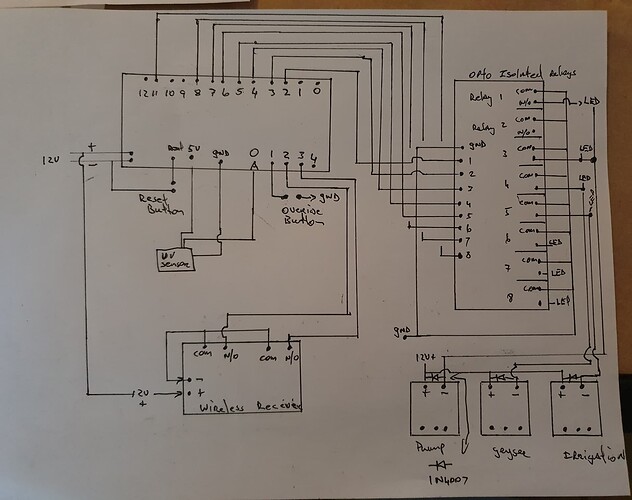 OPTO Isolated Relays
12 11 10 9 8 7 6 5 4 3 2 1 0
Relay 1
com
N/O
LED
Relay 2
com
N/O
GND
1
2
3
4
5
6
7
8
3
com
LED
4
com
LED
5
com
6
com
LED
7
com
LED
8
com
LED
12V
+
-
5V
GND
0
A
1 2 3 4
Reset
Button
Override
Button
GND
UV
sensor
GND
com N/O com N/O
-
+
12V
+
Wireless Receiver
12V+
+ -
+ -
+ -
Pump
geyser
IRRigation
1N4007